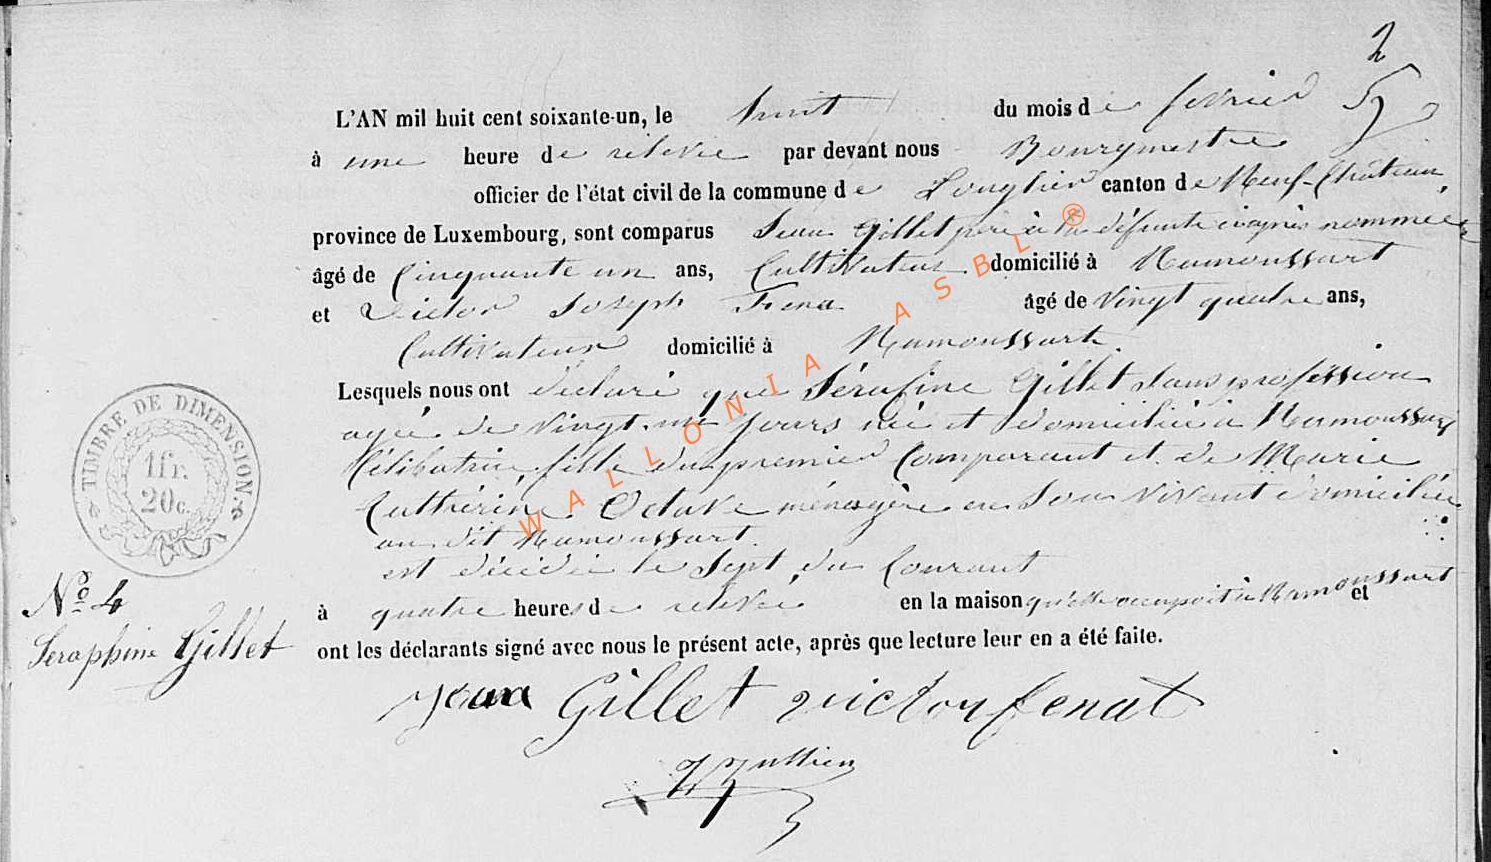 2
L'AN mil huit cent soixante-un, le huit du mois de février
à une heure de relevée par devant nous Bourgmestre
officier de l'état civil de la commune de Longlier canton de Neuf-Château,
province de Luxembourg, sont comparus Jean Gillet père à la défunte ci après nommée
âgé de Cinquante un ans, Cultivateur domicilié à Namoussart
et Victor Joseph âgé de Vingt quatre ans,
Cultivateur domicilié à Namoussart.
Lesquels nous ont déclaré que Sérafine Gillet sans profession
agée de Vingt-un jours née et domiciliée à Namoussart
Célibatrice fille du premier Comparant et de Marie
Cathérine Octave ménagère en Son Vivant domiciliée
au dit Namoussart.
est décédée le Sept du Courant
à quatre heures de relevée en la maison qu'elle occupoit à Namoussart et
ont les déclarants signé avec nous le présent acte, après que lecture leur en a été faite.
TIMBRE DE DIMENSION.
1 fr.
20 c.
No 4
Seraphine Gillet
jean Gillet victor fenat
WALLONIA ASBL ®